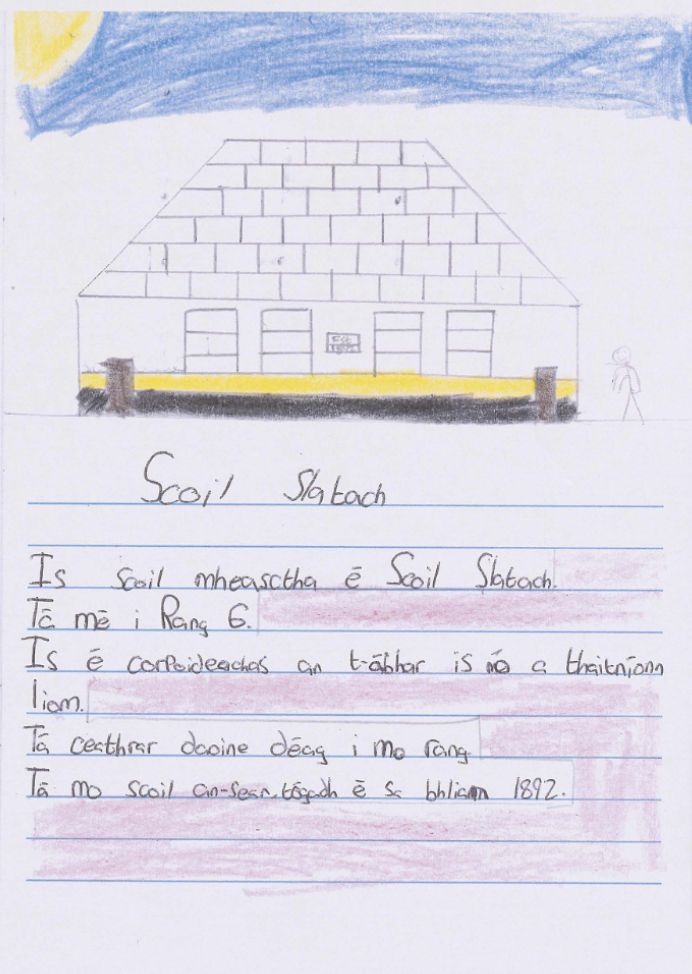 Est
1892
Scoil Slatach
Is scoil mheasctha é Scoil Slatach.
Tá mé i Rang 6.
Is é corpoideachas an t-ábhar is mó a thaitníonn
liom.
Tá ceathrar daoine déag i mo rang
Tá mo scoil an-sean, tógadh é sa bhliain 1892.